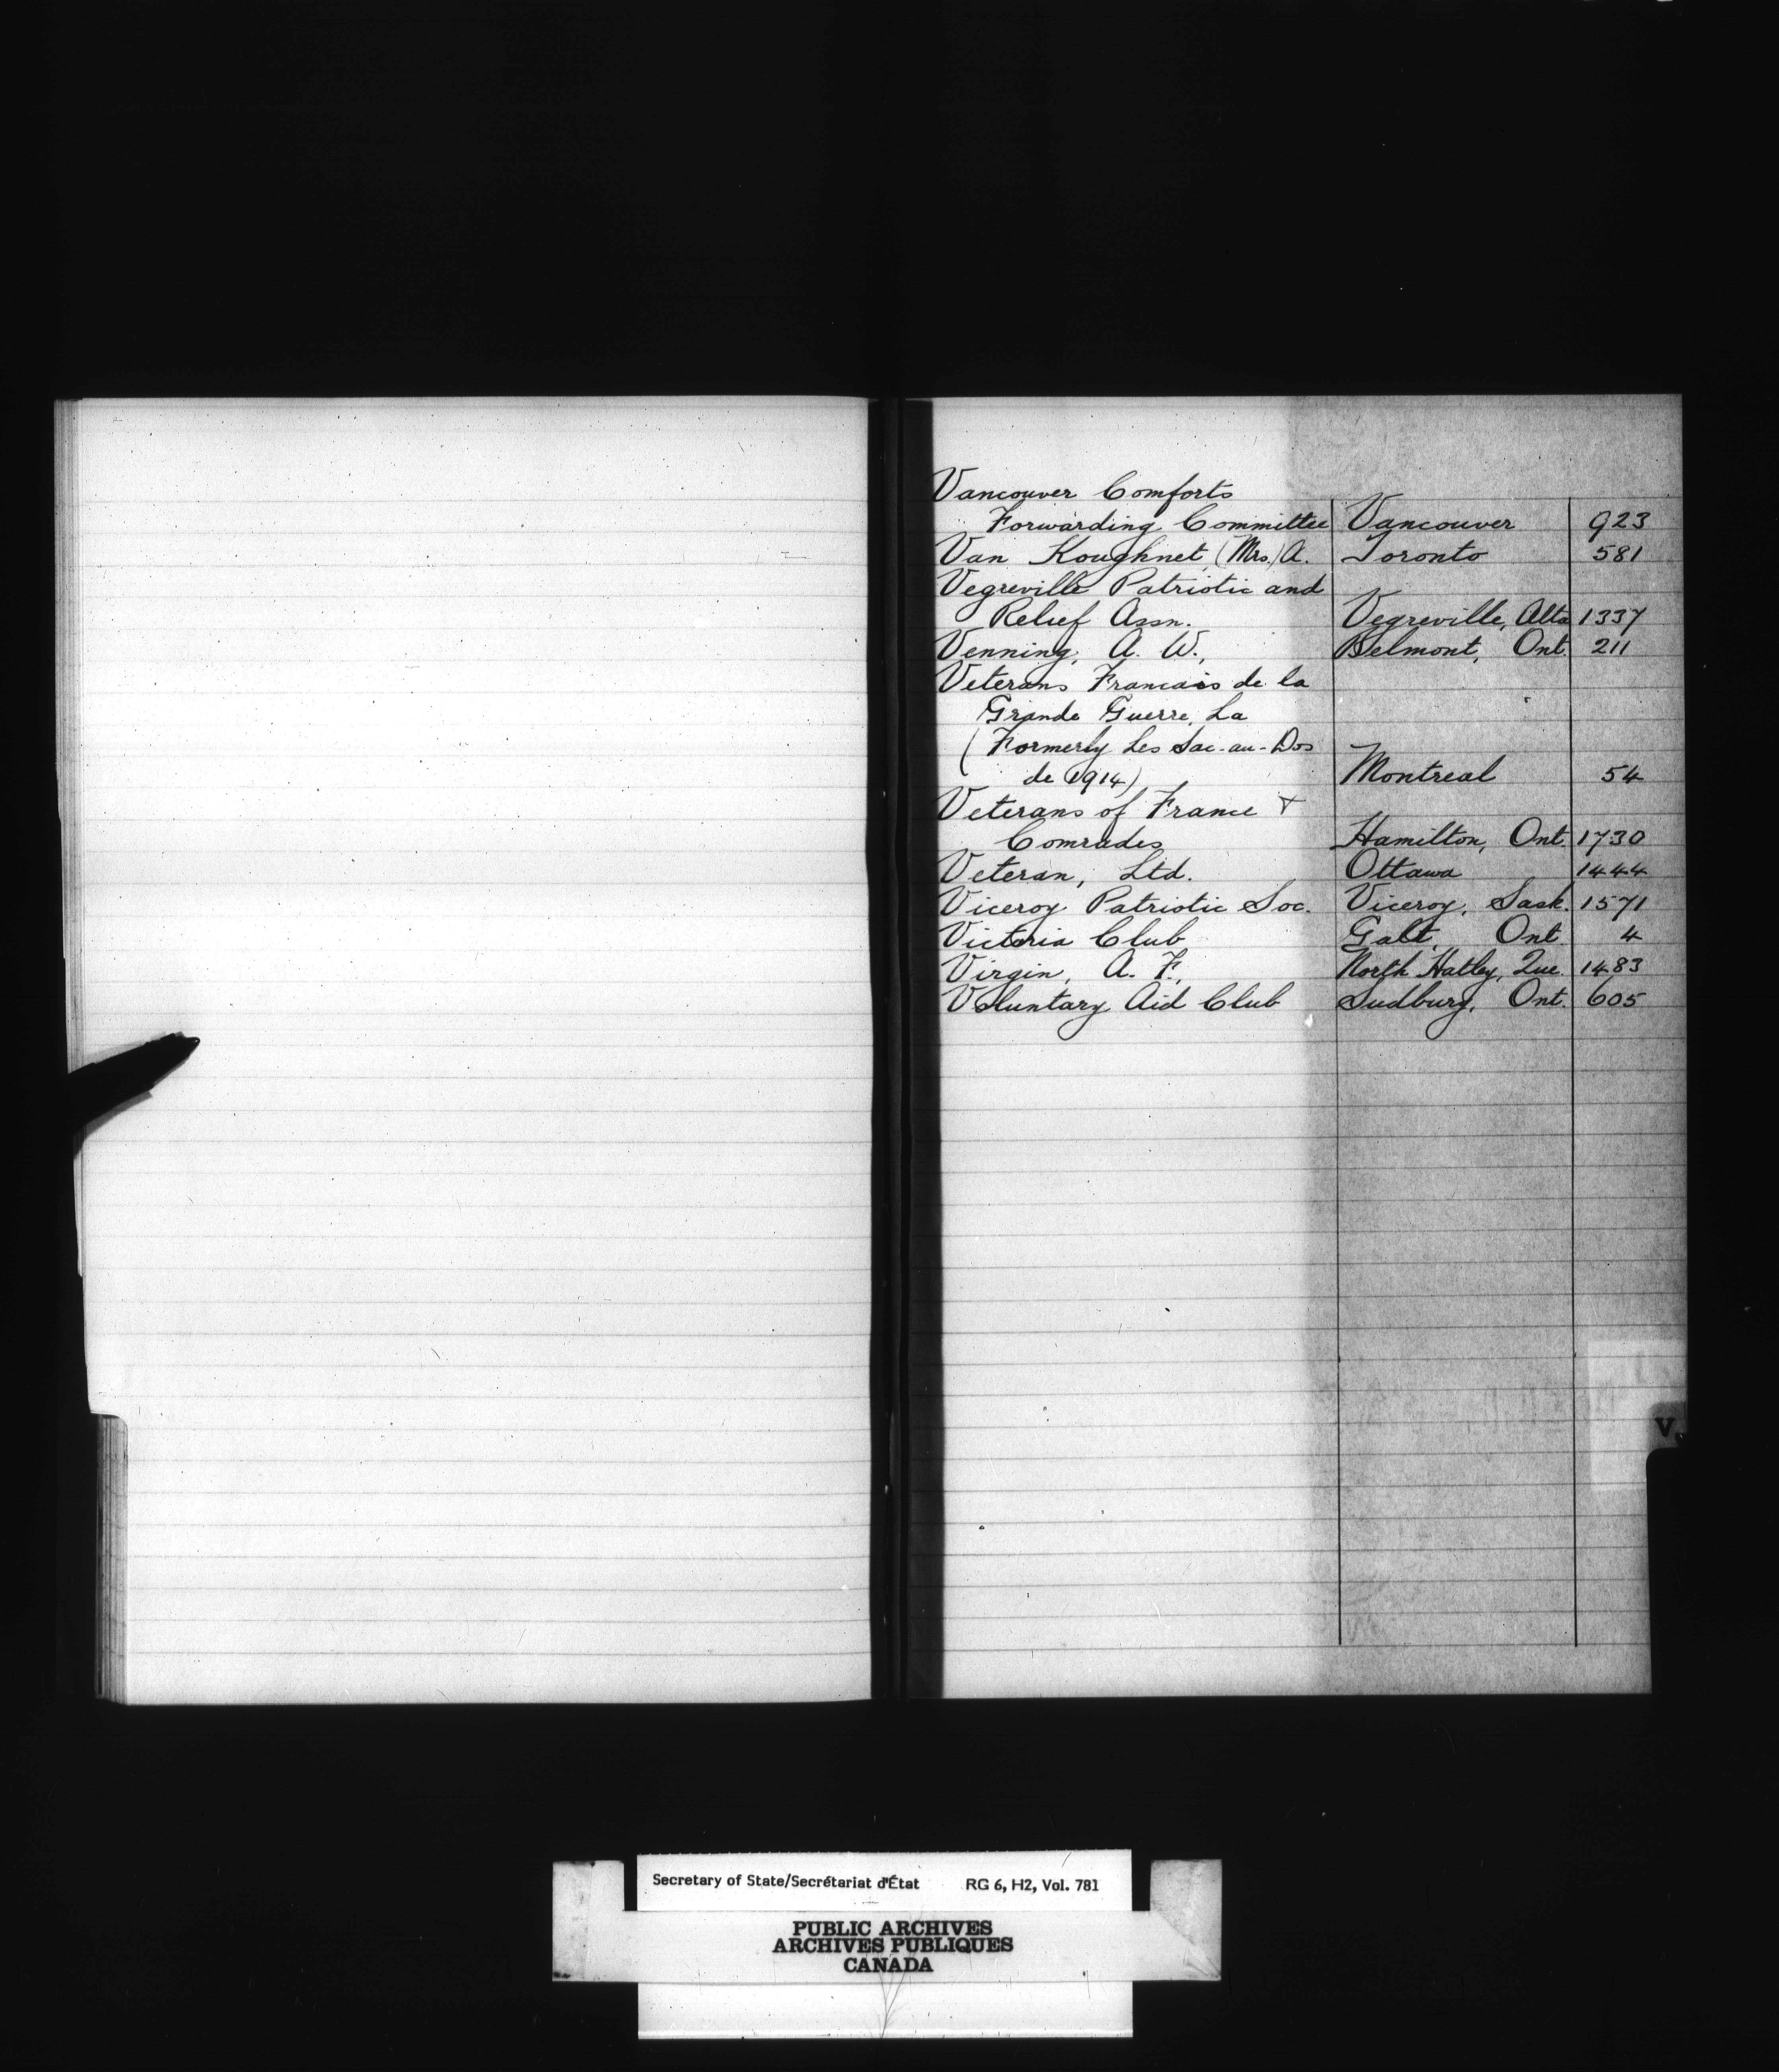 Vancouver Comforts
Forwarding Committee Vancouver 923
Van Koughnet, (Mrs.) A. Toronto 581
Vegreville Patriotic and
Relief Assn. Vegreville, Alta 1337
Venning, A. W., Belmont, Ont. 211
Veterans Francais de la
Grande Guerre, La
(Formerly Les Sac-au-Dos
de 1914) Montreal 54
Veterans of France &
Comrades Hamilton, Ont. 1730
Veteran, Ltd. Ottawa 1444
Viceroy Patriotic Soc. Viceroy, Sask. 1571
Victoria Club Galt, Ont 4
Virgin, A. F., North Hatley, Que. 1483
Voluntary Aid Club Sudbury, Ont. 605
V.
Secretary of State/Secrétariat d'État RG 6, H2, Vol. 781
PUBLIC ARCHIVES
ARCHIVES PUBLIQUES
CANADA